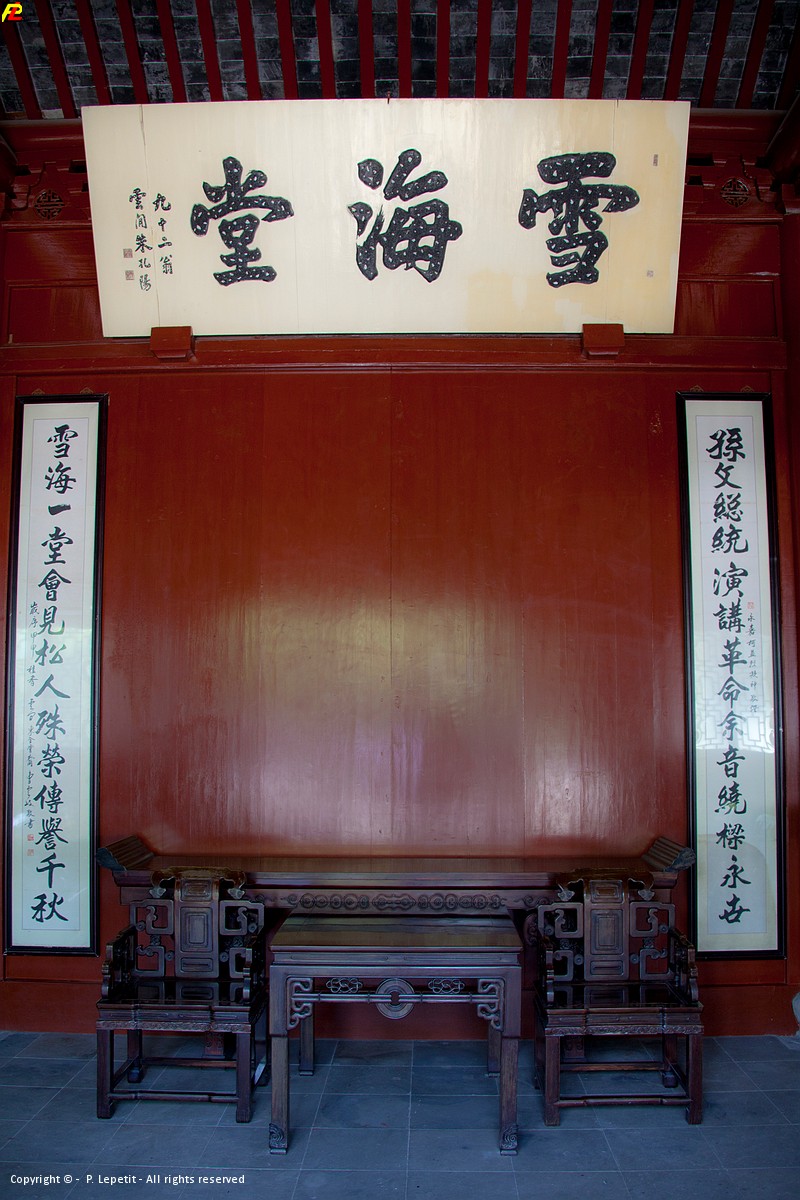 雪海堂
乾坤一翁
雲間朱孔陽
孫文總統演講革命余音繞樑永世
雪海一堂會見松人殊榮傳譽千秋
Copyright © - P. Lepetit - All rights reserved